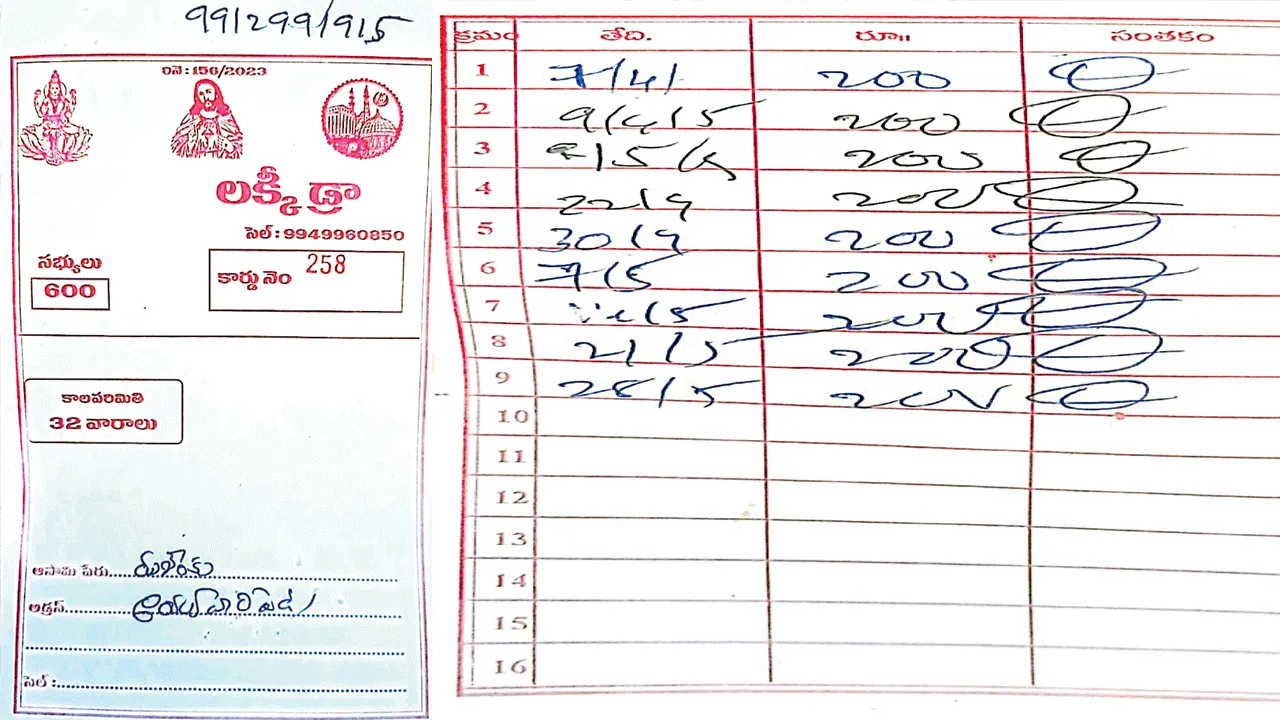 99/299/915
రినె : 156/2023
లక్కీ డ్రా
సెల్ : 9949960850
సభ్యులు
600
కార్డు నెం 258
కాలపరిమితి
32 వారాలు
ఆసామి పేరు
అడ్రస్
సెల్ :
క్రమం తేది. రూ॥ సంతకం
1 7/4/ 200
2 9/4/5 200
3 200
4 22/9 200
5 30/9 200
6 7/5 200
7 200
8 21/5 200
9 28/5 200
10
11
12
13
14
15
16